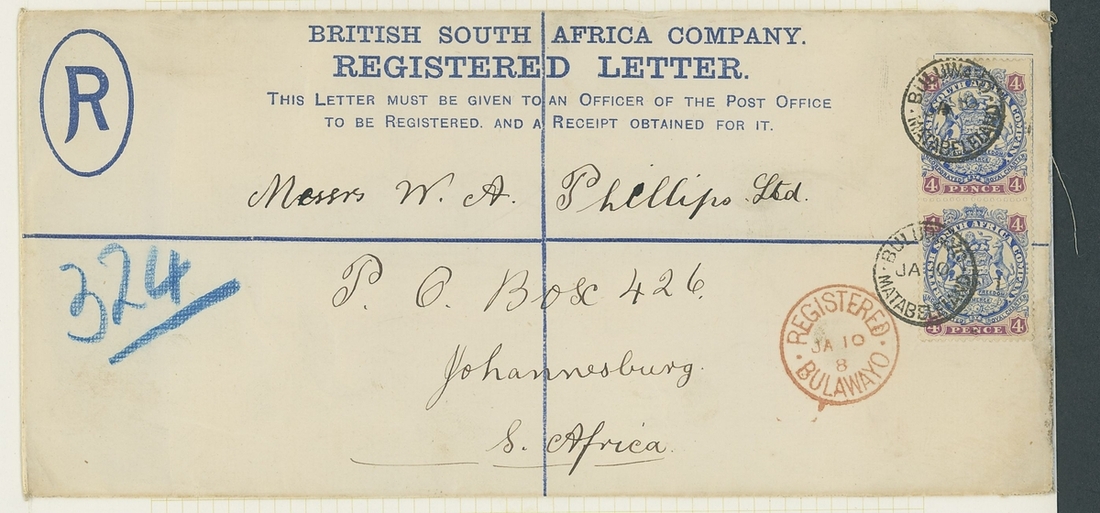 R
BRITISH SOUTH AFRICA COMPANY.
REGISTERED LETTER.
THIS LETTER MUST BE GIVEN TO AN OFFICER OF THE POST OFFICE
TO BE REGISTERED. AND A RECEIPT OBTAINED FOR IT.
Messrs W. A. Phillips. Ltd.
324
P. O. Box 426.
Johannesburg.
S. Africa.
REGISTERED
JA 10
8
BULAWAYO
4 4
SOUTH AFRICA
4 PENCE 4
MATABELELAND
4 4
SOUTH AFRICA COMPANY
4 PENCE 4
JA 10
MATABELELAND